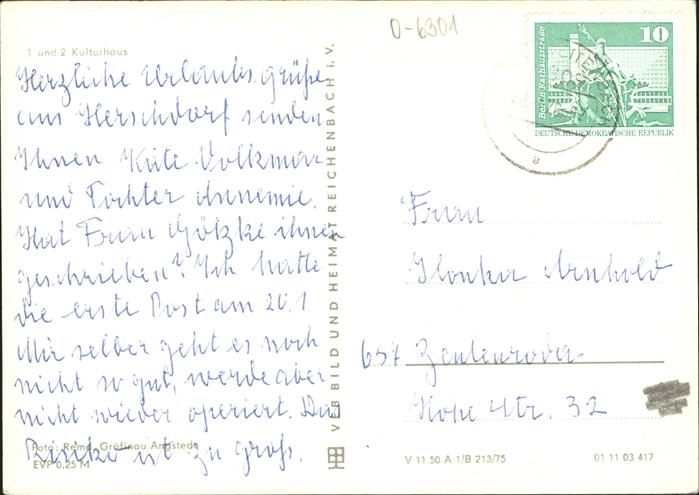 O-6301
1 und 2 Kulturhaus
Herzliche Urlaubsgrüße
aus Herschdorf senden
Ihnen Käte Volkmar
und Tochter Annemie.
Hat Frau Götzke ihnen
geschrieben? Ich hatte
die erste Post am 20.1
Mir selber geht es noch
nicht so gut, werde aber
nicht wieder operiert. Das
Risiko ist zu groß.
Foto: Remd, Gräfinau Angstedt
EVP 0,25 M
VEB BILD UND HEIMAT REICHENBACH I. V.
Berlin, Rathausstraße
10
DEUTSCHE DEMOKRATISCHE REPUBLIK
a
Frau
Ilonka Arnhold
657 Zeulenroda
Hohe Str. 32
V 11 50 A 1/B 213/75
01 11 03 417